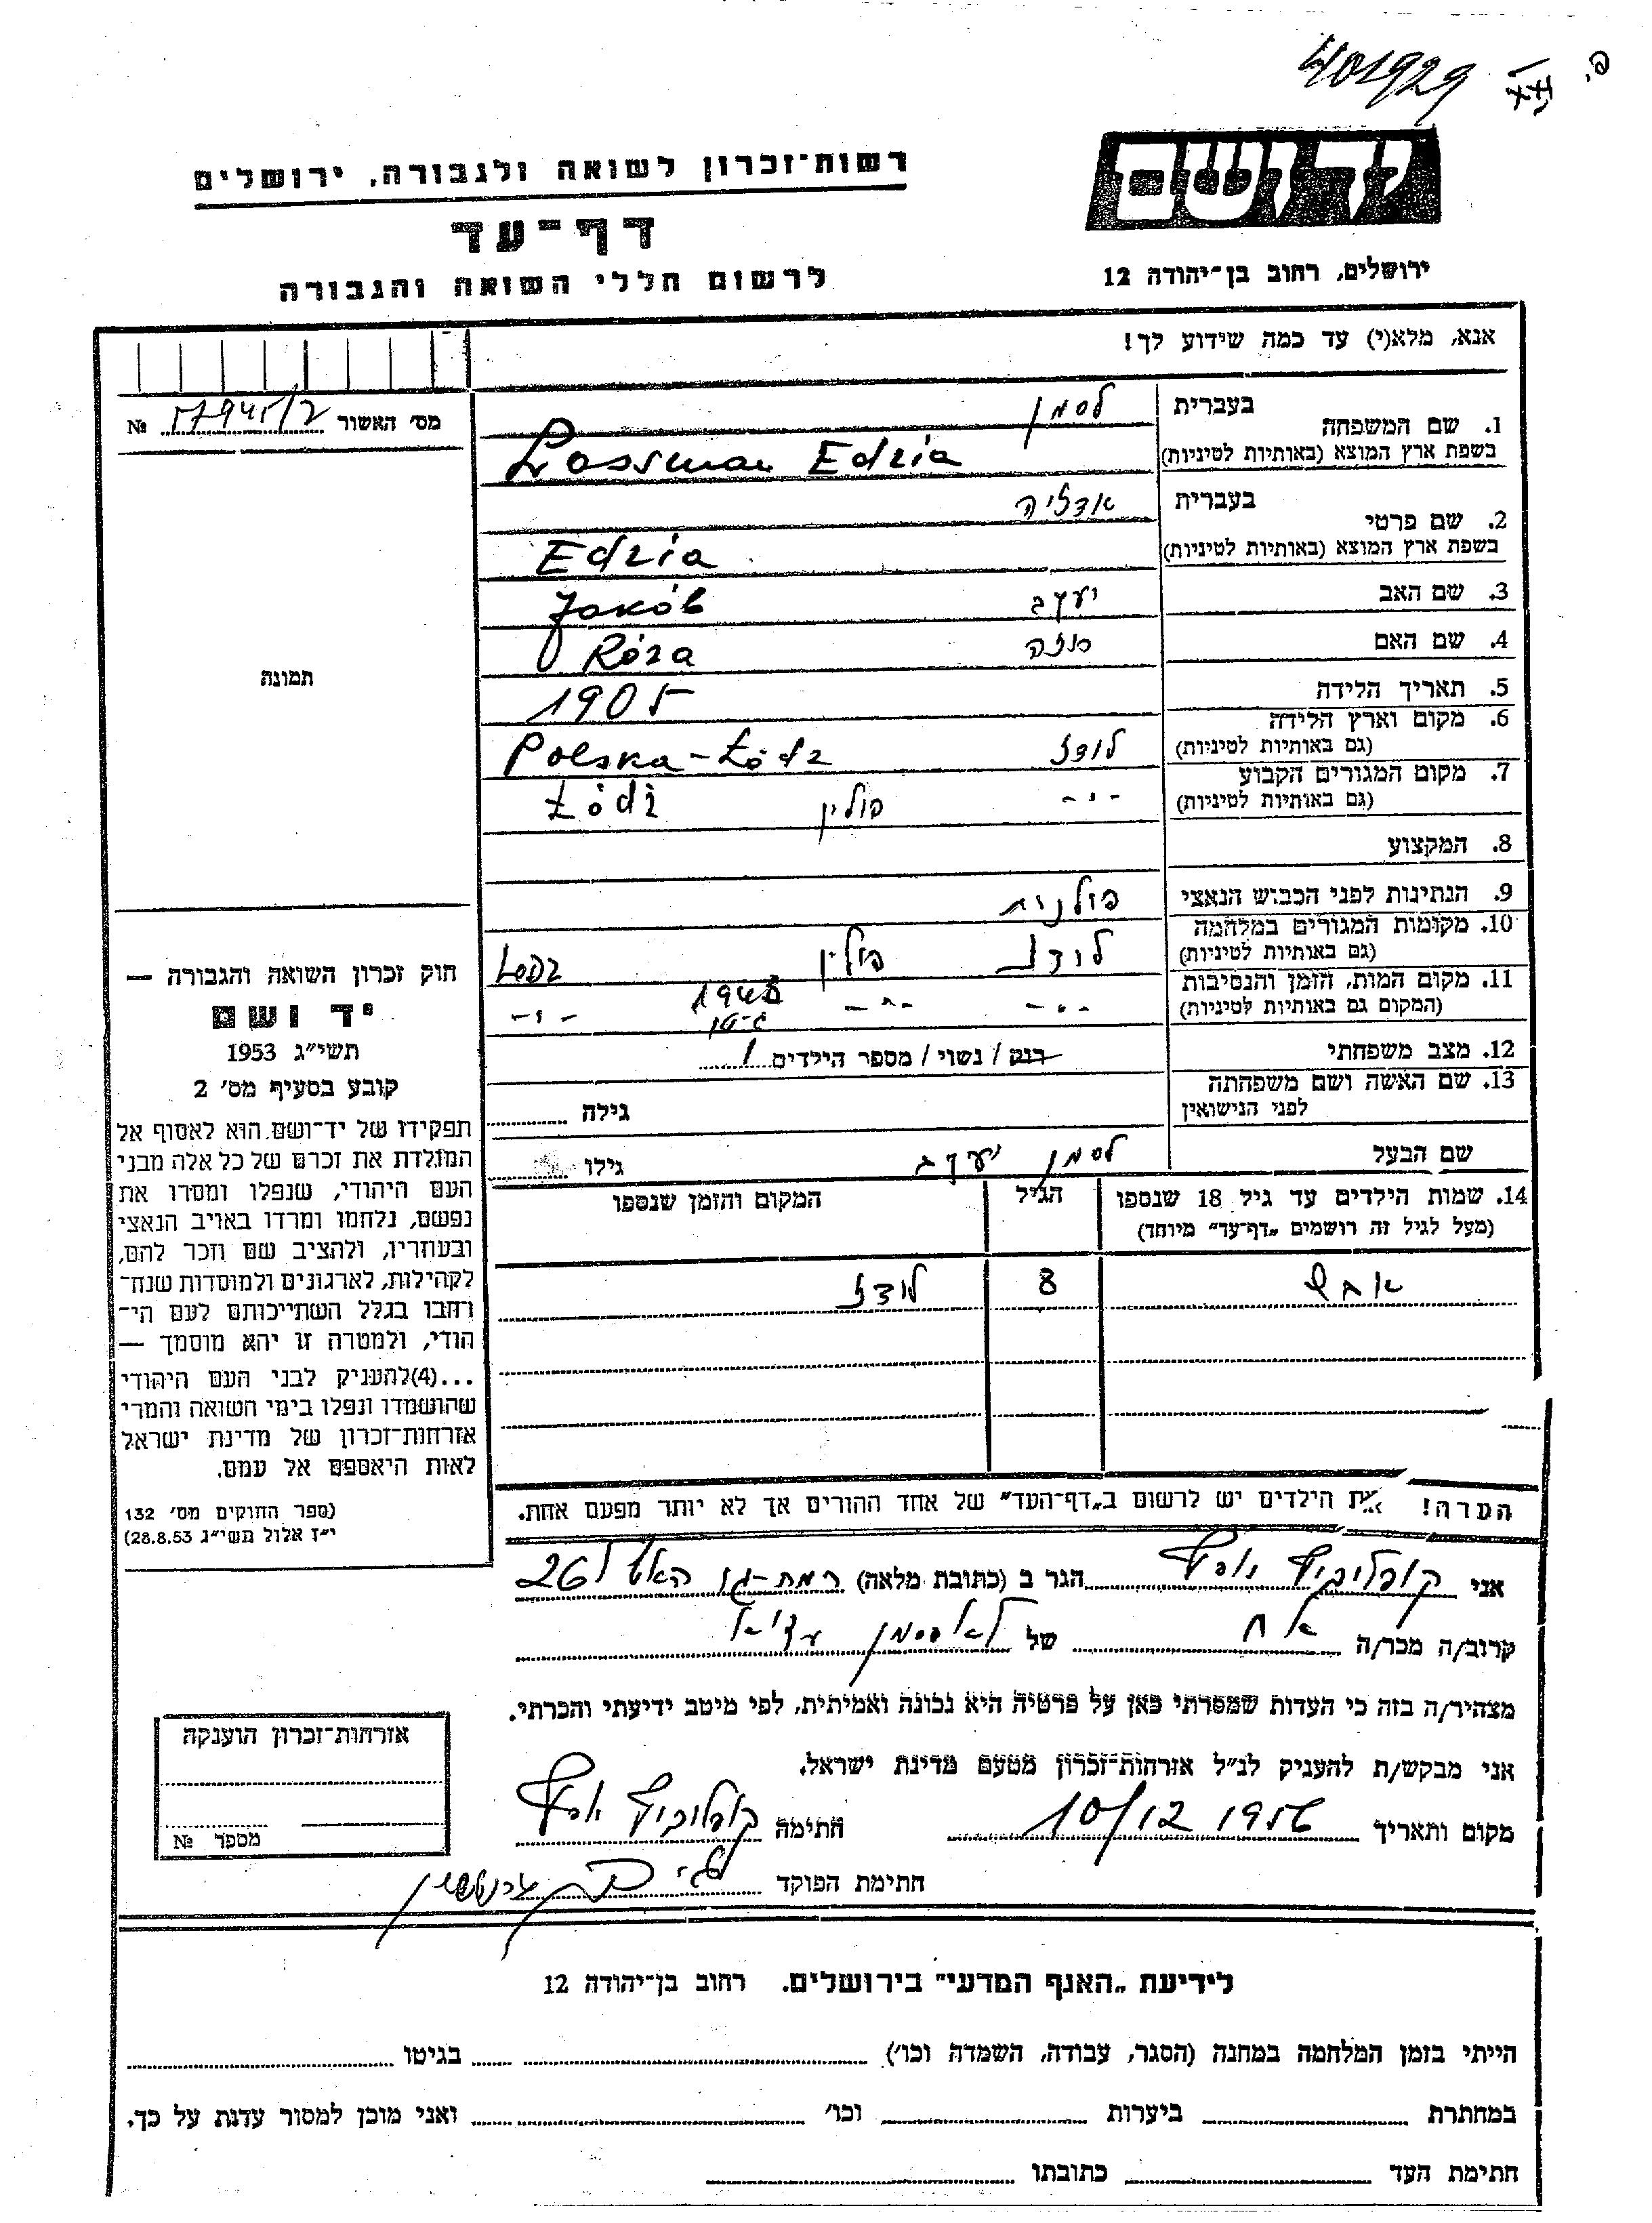 401929
יד ושם
רשות־זכרון לשואה ולגבורה, ירושלים
דף־עד
לרשום חללי השואה והגבורה
ירושלים, רחוב בן־יהודה 12
אנא, מלא(י) עד כמה שידוע לך!
מס׳ האשור № 57945/2
תמונה
1. שם המשפחה בעברית לסמן
בשפת ארץ המוצא (באותיות לטיניות) Lossman Edzia
2. שם פרטי בעברית אדזיה
בשפת ארץ המוצא (באותיות לטיניות) Edzia
3. שם האב יעקב Jakób
4. שם האם רוזה Róza
5. תאריך הלידה 1905
6. מקום וארץ הלידה
(גם באותיות לטיניות) לודז Polska - Łódz
7. מקום המגורים הקבוע
(גם באותיות לטיניות) -״- פולין Łódź
8. המקצוע
9. הנתינות לפני הכבוש הנאצי פולנית
10. מקומות המגורים במלחמה
(גם באותיות לטיניות) לודז פולין Lodz
11. מקום המות, הזמן והנסיבות
(המקום גם באותיות לטיניות) -״- -״- גיטו -״-
12. מצב משפחתי רווק / נשוי / מספר הילדים 1
13. שם האשה ושם משפחתה
לפני הנישואין גילה
שם הבעל לסמן יעקב גילו
14. שמות הילדים עד גיל 18 שנספו
(מעל לגיל זה רושמים „דף־עד״ מיוחד)
הגיל
המקום והזמן שנספו
8 לודז
הערה! את הילדים יש לרשום ב„דף־העד״ של אחד ההורים אך לא יותר מפעם אחת.
חוק זכרון השואה והגבורה —
יד ושם
תשי״ג 1953
קובע בסעיף מס׳ 2
תפקידו של יד־ושם הוא לאסוף אל
המולדת את זכרם של כל אלה מבני
העם היהודי, שנפלו ומסרו את
נפשם, נלחמו ומרדו באויב הנאצי
ובעוזריו, ולהציב שם וזכר להם,
לקהילות, לארגונים ולמוסדות שנח־
רחבו בגלל השתייכותם לעם הי־
הודי, ולמטרה זו יהא מוסמך —
...(4)להעניק לבני העם היהודי
שהושמדו ונפלו בימי השואה והמרי
אזרחות־זכרון של מדינת ישראל
לאות היאספם אל עמם.
(ספר החוקים מס׳ 132
י״ז אלול תשי״ג 28.8.53)
אני הגר ב (כתובת מלאה) רמת-גן 26
קרוב/ה מכר/ה אח של לאסמן
מצהיר/ה בזה כי העדות שמסרתי כאן על פרטיה היא נכונה ואמיתית, לפי מיטב ידיעתי והכרתי.
אני מבקש/ת להעניק לנ״ל אזרחות־זכרון מטעם מדינת ישראל.
מקום ותאריך 10/12 1956 חתימה
חתימת הפוקד
אזרחות־זכרון הוענקה
מספר №
לידיעת „האגף המדעי״ בירושלים. רחוב בן־יהודה 12
הייתי בזמן המלחמה במחנה (הסגר, עבודה, השמדה וכו׳) בגיטו
במחתרת ביערות וכו׳ ואני מוכן למסור עדות על כך.
חתימת העד כתובתו